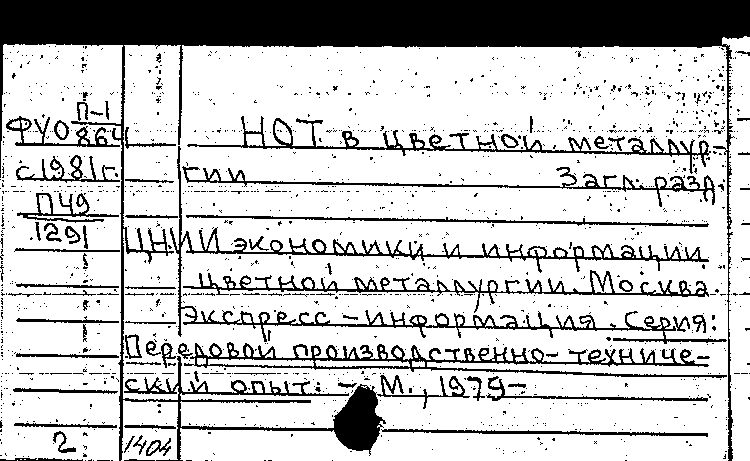 П-1
ФУО 864
с 1981г.
П49
1291
НОТ в цветной металлур-
гии Загл. разд.
ЦНИИ экономики и информации
цветной металлургии. Москва.
Экспресс-информация. Серия:
Передовой производственно-техниче-
ский опыт. - М., 1979-
2 1404